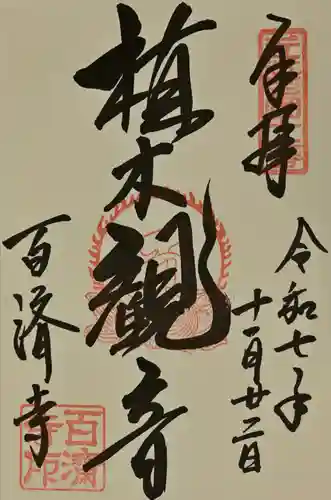 奉拝
令和七年
十一月廿二日
植木観音
百済寺
百済寺印